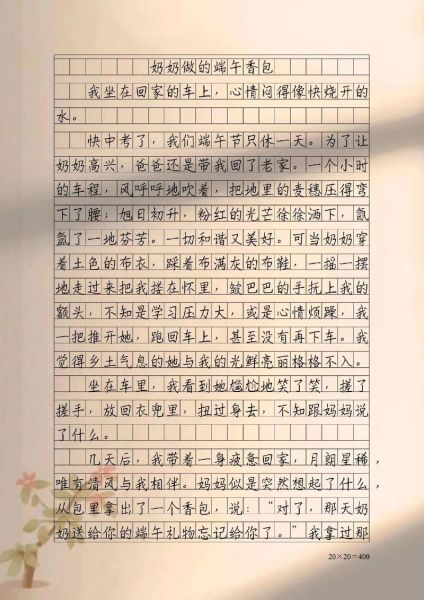 奶奶做的端午香包
我坐在回家的车上，心情闷得像快烧开的
水。
快中考了，我们端午节只休一天。为了让
奶奶高兴，爸爸还是带我回了老家。一个小时
的车程，风呼呼地吹着，把地里的麦穗压得弯
下了腰；旭日初升，粉红的光芒徐徐洒下，氤
氲了一地芬芳。一切和谐又美好。可当奶奶穿
着土色的布衣，踩着布满灰的布鞋，一摇一摆
地走过来把我搂在怀里，皱巴巴的手抚上我的
额头，不知是学习压力大，或是心情烦躁，我
一把推开她，跑回车上，甚至没有再下车。我
觉得乡土气息的她与我的光鲜亮丽格格不入。
坐在车里，我看到她尴尬地笑了笑，搓了
搓手，放回衣兜里，扭过身去，不知跟妈妈说
了什么。
几天后，我带着一身疲惫回家，月朗星稀，
唯有清风与我相伴。妈妈似是突然想起了什么，
从包里拿出了一个香包，说：“对了，那天奶
奶送给你的端午礼物忘记给你了。”我拿过那
20×20=400